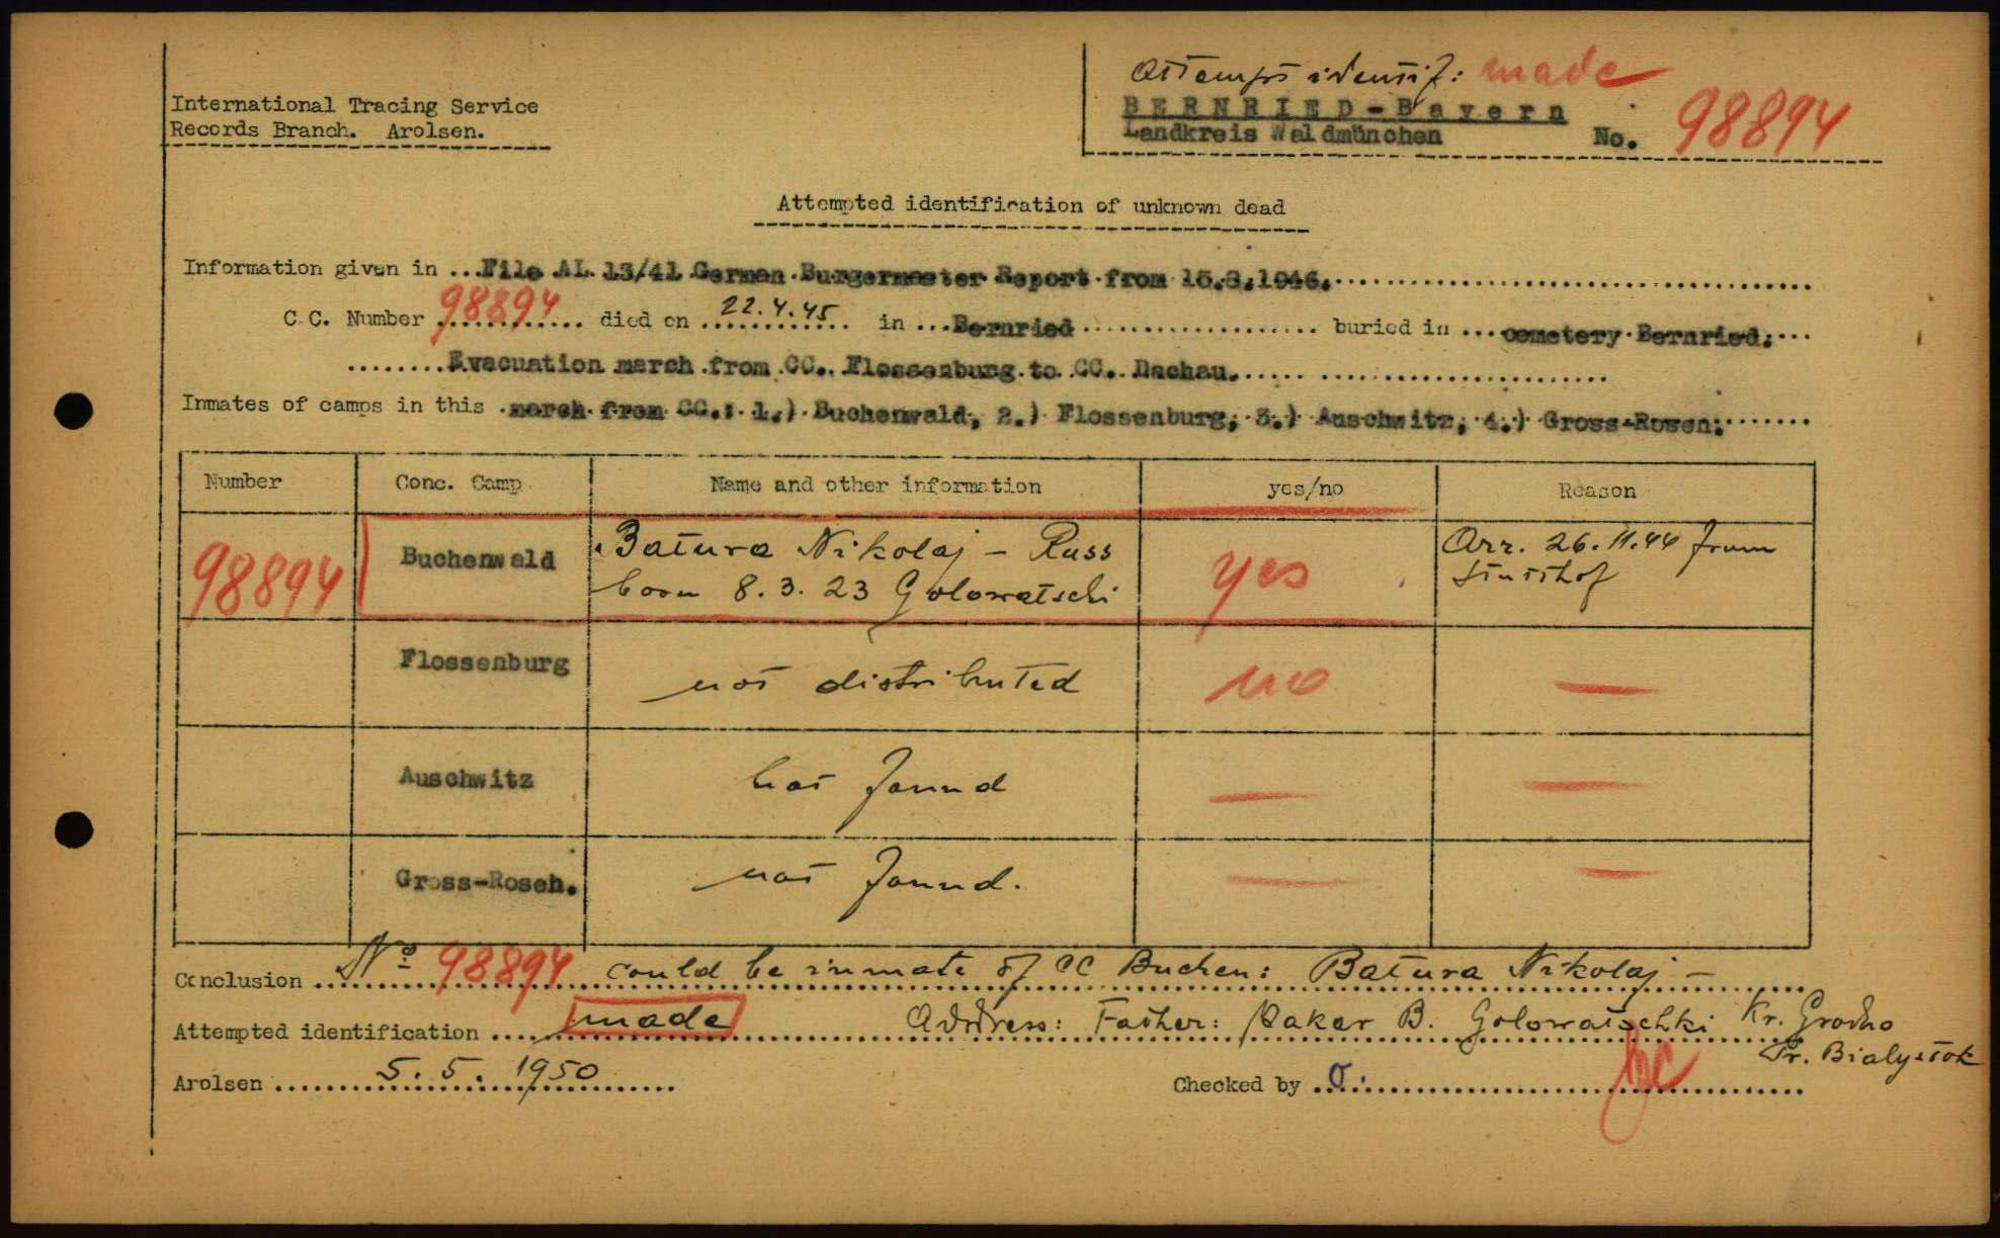 Attempt identif: made
International Tracing Service
Records Branch. Arolsen.
BERNRIED-Bayern
Landkreis Waldmünchen No. 98894
Attempted identification of unknown dead
Information given in ...File AL 13/41 German Burgermeester Report from 15.3.1946.
C.C. Number 98894 died on 22.4.45 in ...Bernried buried in ...cemetery Bernried;
Evacuation march from CC. Flossenburg to CC. Dachau.
Inmates of camps in this march from CC.: 1.) Buchenwald, 2.) Flossenburg, 3.) Auschwitz, 4.) Gross-Rosen;
Number Conc. Camp Name and other information yes/no Reason
98894 Buchenwald Batura Nikolaj - Russ yes Arr. 26.11.44 from
born 8.3.23 Golowatschi Stutthof
Flossenburg not distributed no —
Auschwitz not found — —
Gross-Rosen. not found. — —
Conclusion No 98894 could be inmate of CC Buchen: Batura Nikolaj -
Attempted identification made Address: Father: Makar B. Golowatschki Kr. Grodno
Pr. Bialystok
Arolsen 5.5.1950 Checked by